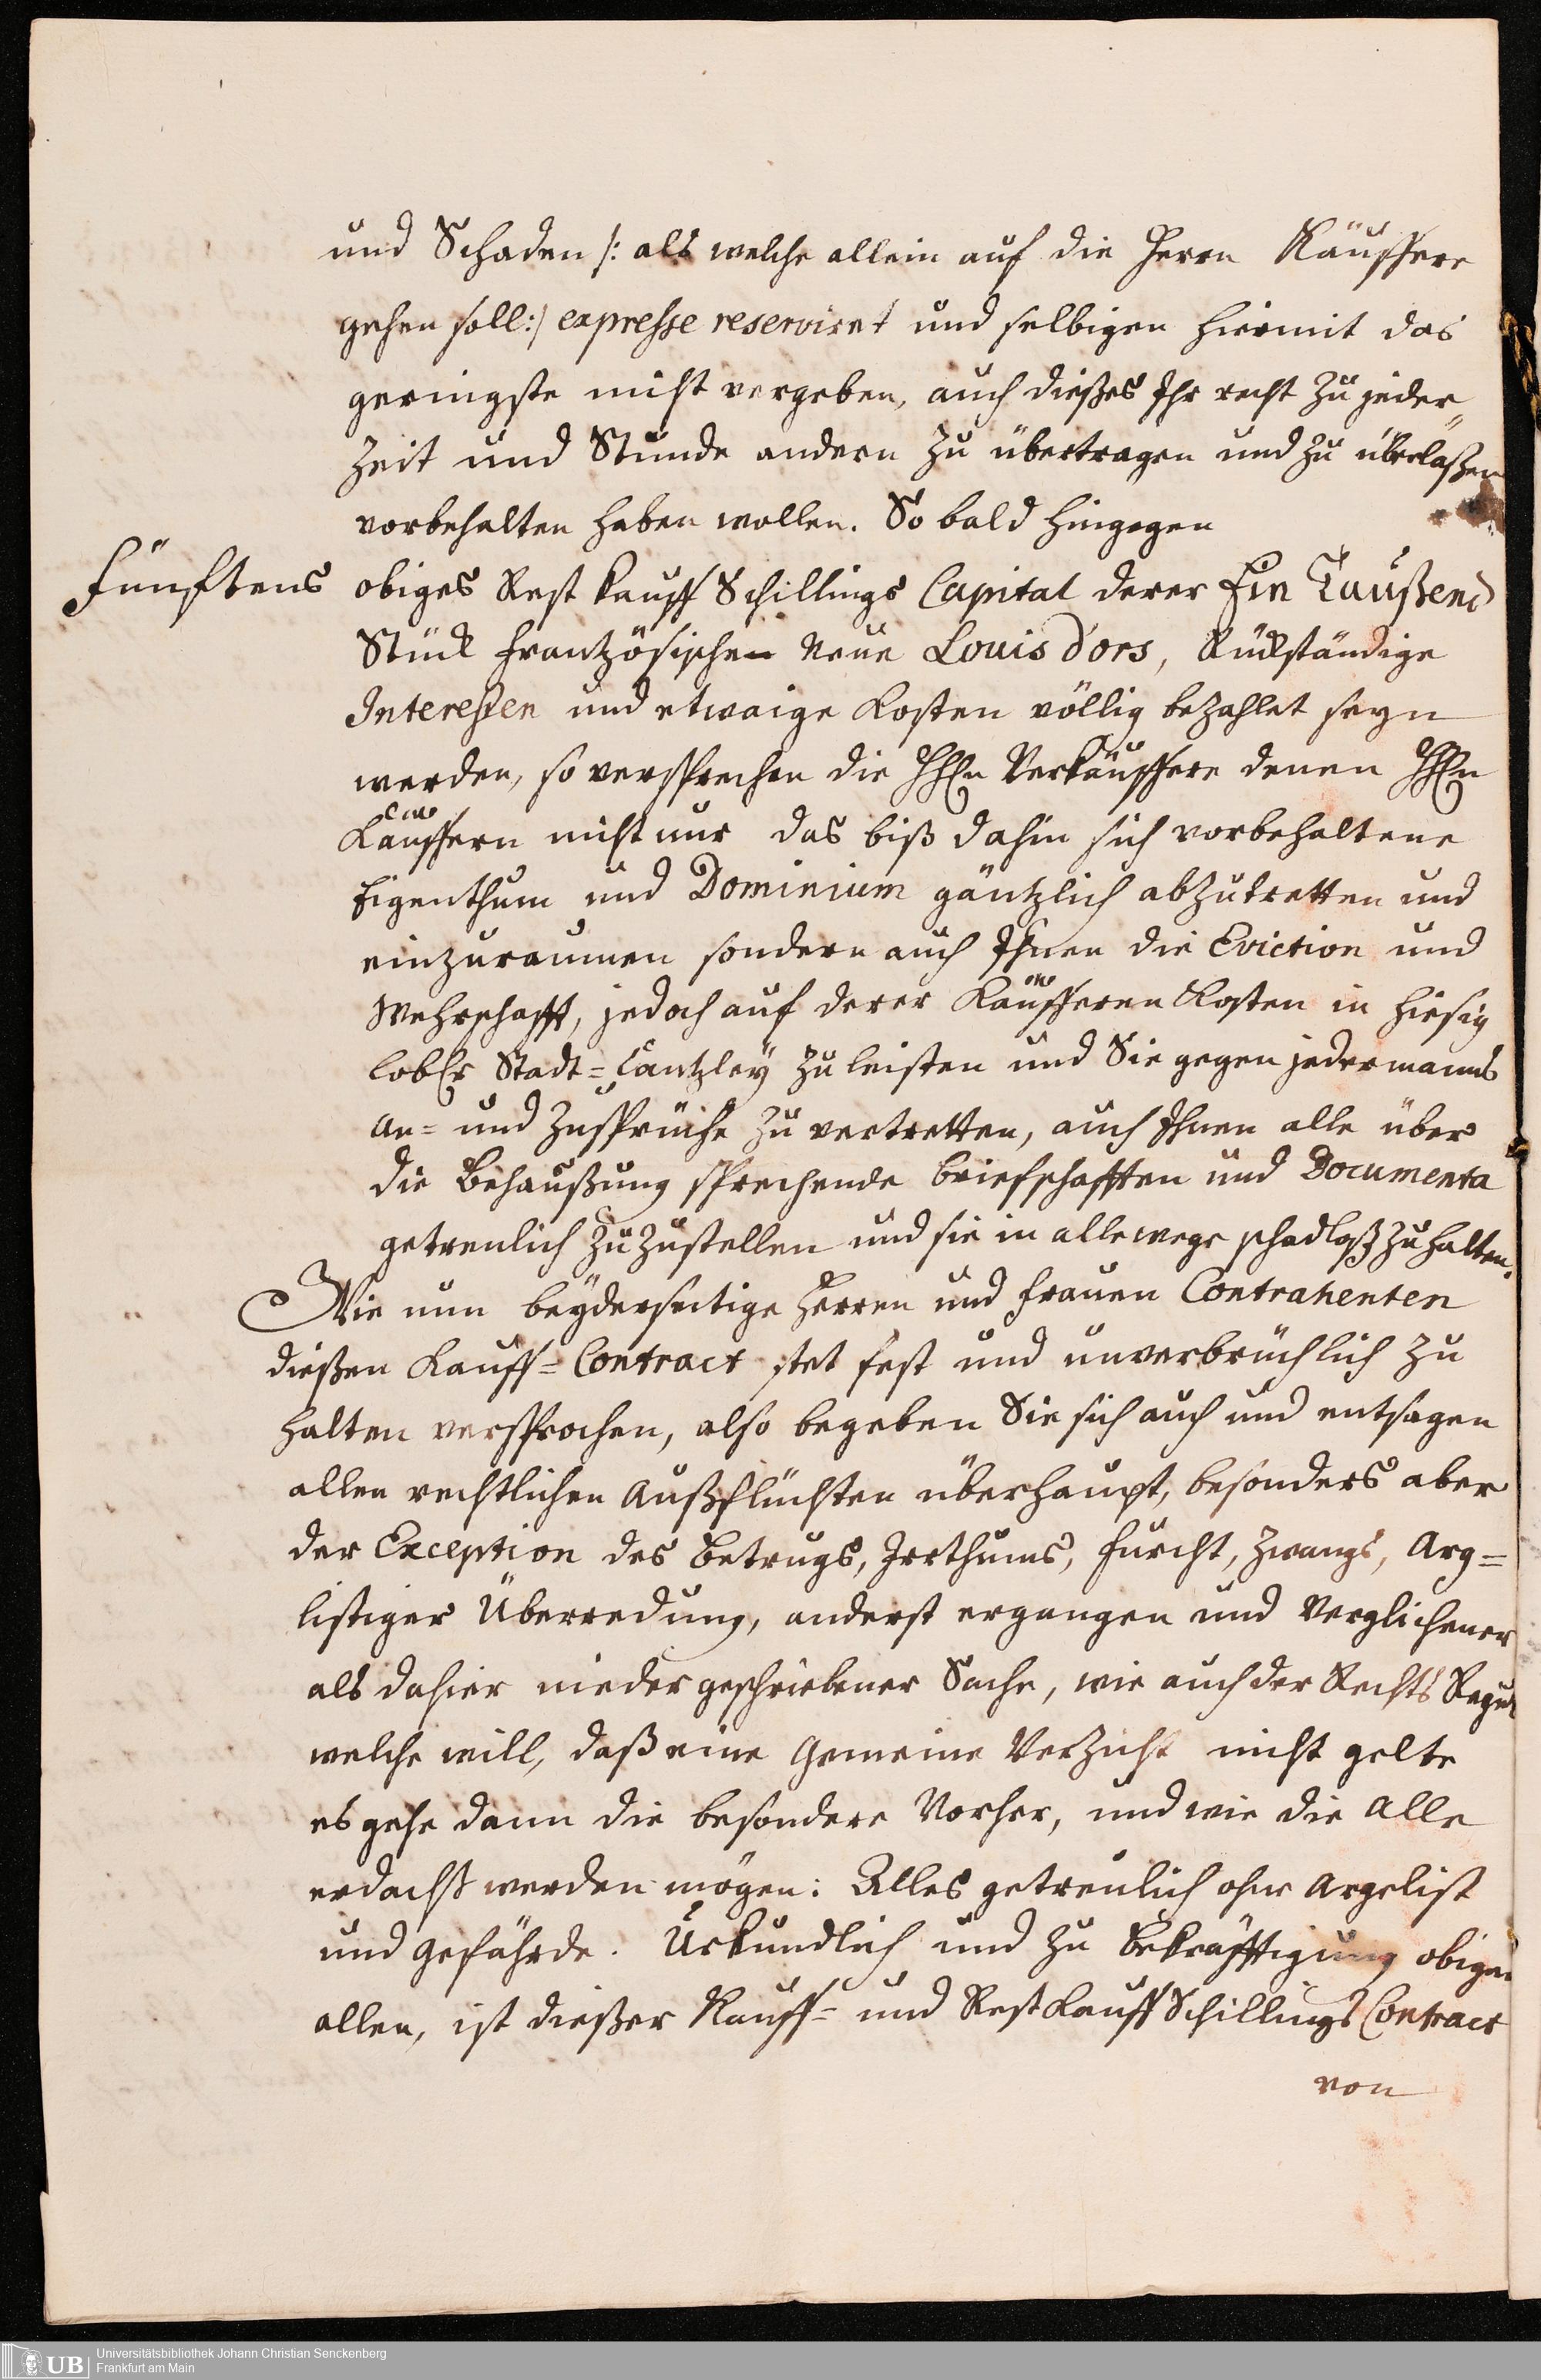 und Schaden /: als welche allein auf die Herrn Käuffere
gehen soll :/ expresse reserviret und selbigen hiermit das
geringste nicht vergeben, auch dießes Ihr recht zu jeder
Zeit und Stunde andern zu übertragen und zu überlaßen
vorbehalten haben wollen. So bald hingegen
Fünftens obiges Rest kauff Schillings Capital derer Ein Taußend
Stück Frantzösische Neue Louis d'ors, Rückständige
Interessen und etwaige Kosten völlig bezahlet seyn
werden, so versprechen die HHEn Verkäuffere denen HHEn
Käuffern nicht nur das biß dahin sich vorbehaltene
Eigenthum und Dominium gäntzlich abzutretten und
einzuraumen sondern auch Ihnen die Eviction und
Wehrschafft, jedoch auf derer Käufferen Kosten in hiesig
lobl. Stadt=Cantzley zu leisten und Sie gegen jedermanns
An= und Zusprüche zu vertretten, auch Ihnen alle über
die Behaußung sprechende briefschafften und Documenta
getreulich zuzustellen und sie in allewege schadloß zu halten.
Wie nun beyderseitige Herren und Frauen Contrahenten
dießen Kauff=Contract stet fest und unverbrüchlich zu
halten versprochen, also begeben Sie sich auch und entsagen
allen rechtlichen Außflüchten überhaupt, besonders aber
der Exception des Betrugs, Irrthums, Furcht, Zwangs, Arg=
listiger Überredung, anderst ergangen und Verglichener
als dahier niedergeschriebener Sache, wie auch der Rechts Regul
welche will, daß eine Gemeine Verzicht nicht gelte
es gehe dann die besondere Vorher, und wie die Alle
erdacht werden mögen: Alles getreulich ohne Argelist
und Gefährde. Urkundlich und zu Bekräfftigung obigen
allen, ist dießer Kauff= und Restkauff Schillings Contract
von
Universitätsbibliothek Johann Christian Senckenberg
Frankfurt am Main
UB